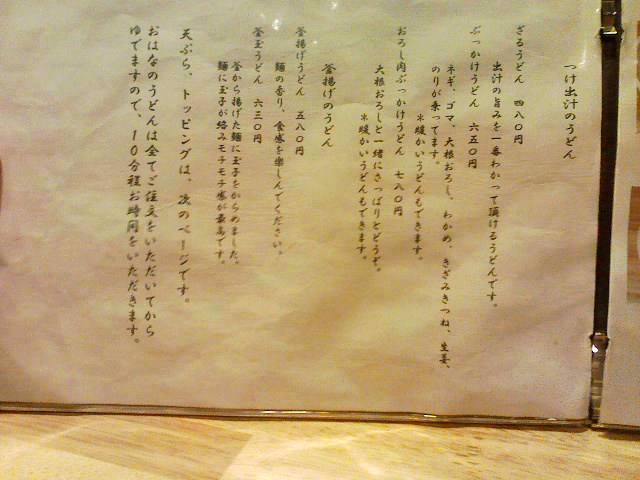 つけ出汁のうどん
ざるうどん 四八〇円
出汁の旨みを一番わかって頂けるうどんです。
ぶっかけうどん 六五〇円
ネギ、ゴマ、大根おろし、わかめ、きざみきつね、生姜、
のりが乗ってます。
＊暖かいうどんもできます。
おろし肉ぶっかけうどん 七八〇円
大根おろしと一緒にさっぱりとどうぞ。
＊暖かいうどんもできます。
釜揚げのうどん
釜揚げうどん 五八〇円
麺の香り、食感を楽しんでください。
釜玉うどん 六三〇円
釜から揚げた麺に玉子をからめました。
麺に玉子が絡みモチモチ感が最高です。
天ぷら、トッピングは、次のページです。
おはなのうどんは全てご注文をいただいてから
ゆでますので、１０分程お時間をいただきます。